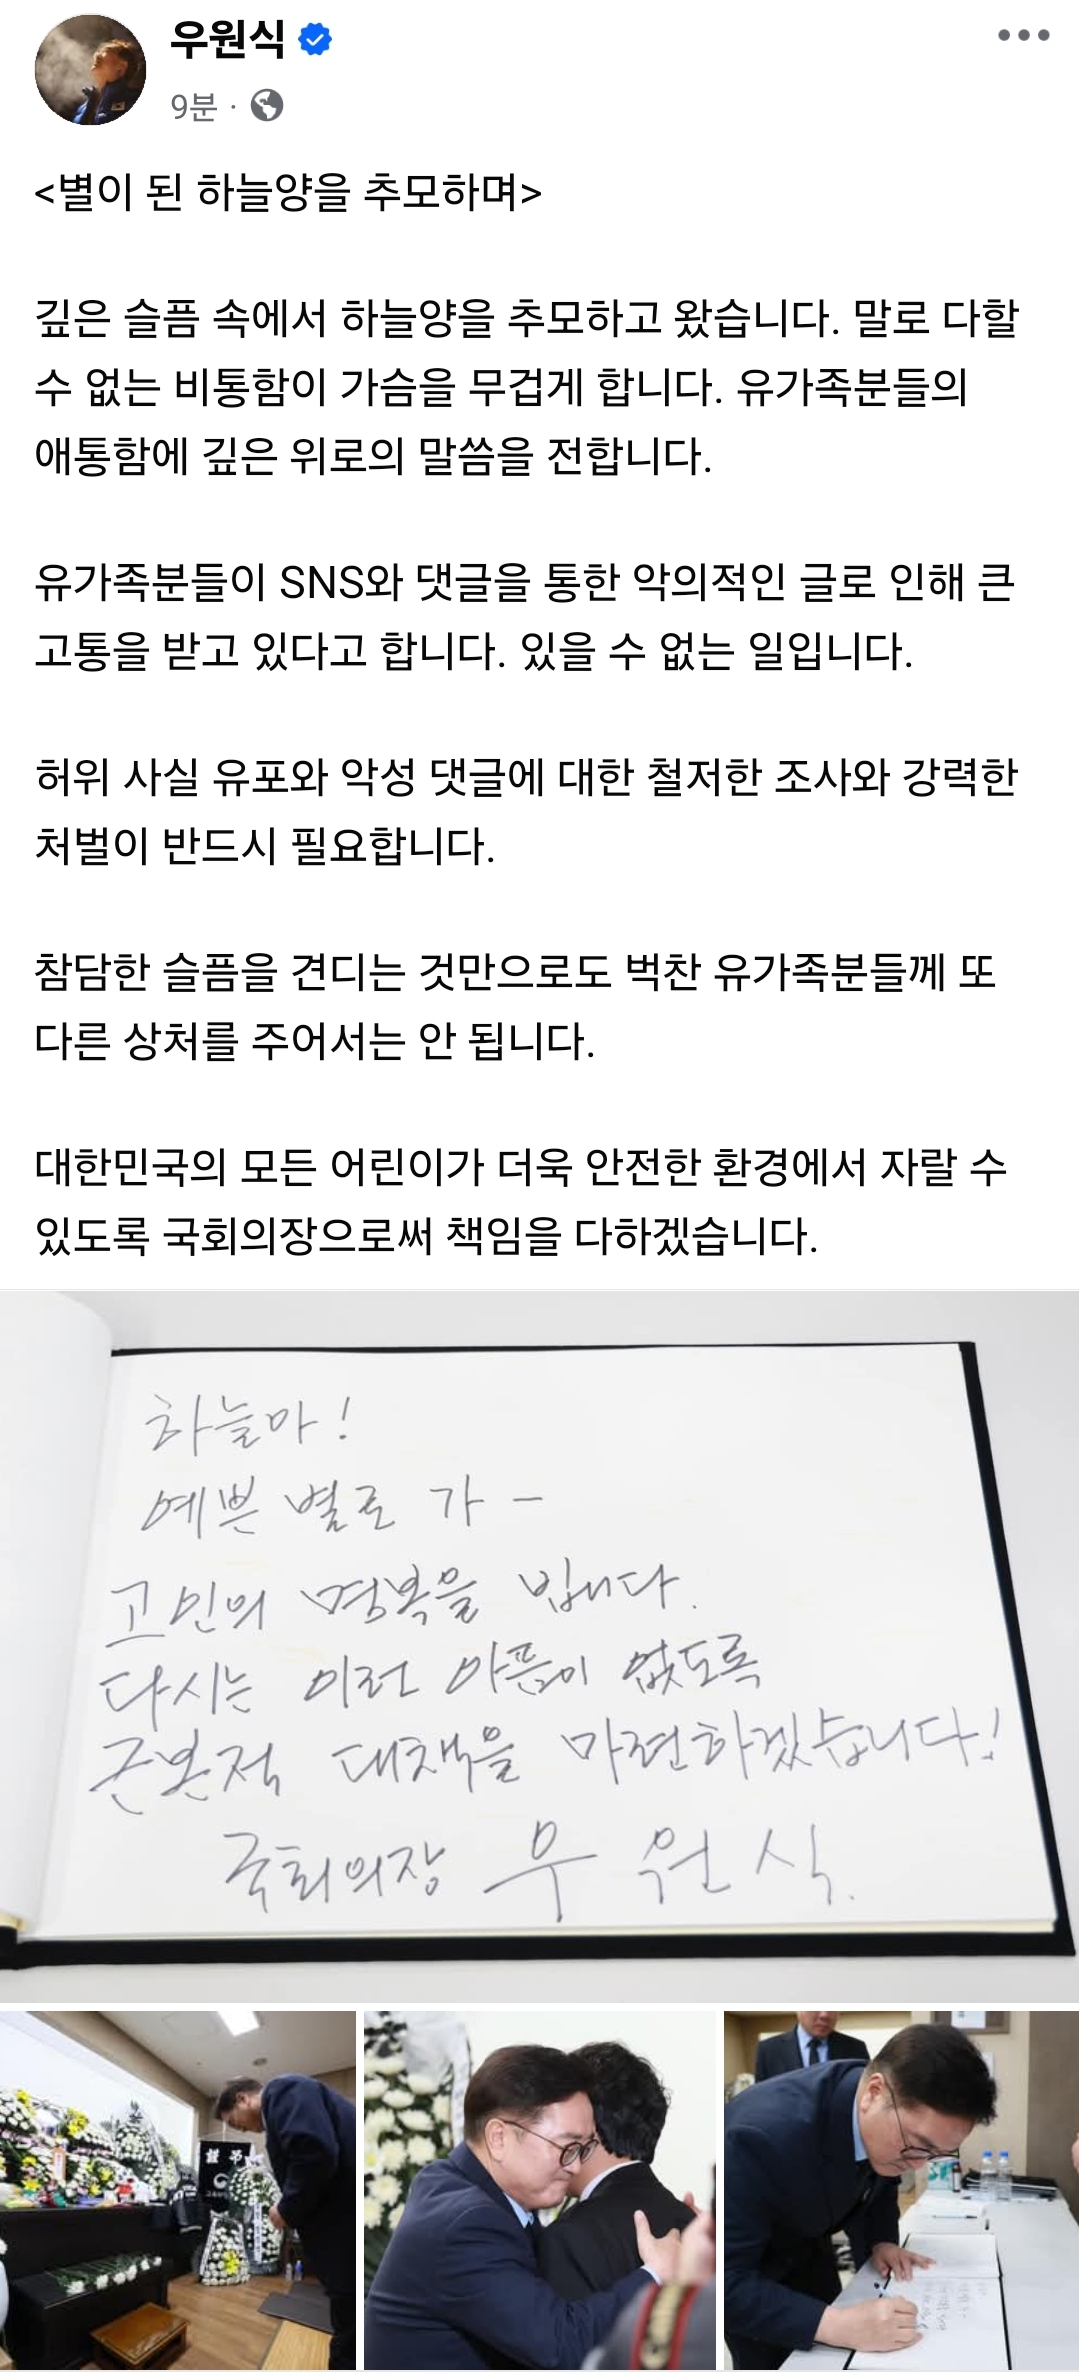 우원식
9분 ·
<별이 된 하늘양을 추모하며>
깊은 슬픔 속에서 하늘양을 추모하고 왔습니다. 말로 다할
수 없는 비통함이 가슴을 무겁게 합니다. 유가족분들의
애통함에 깊은 위로의 말씀을 전합니다.
유가족분들이 SNS와 댓글을 통한 악의적인 글로 인해 큰
고통을 받고 있다고 합니다. 있을 수 없는 일입니다.
허위 사실 유포와 악성 댓글에 대한 철저한 조사와 강력한
처벌이 반드시 필요합니다.
참담한 슬픔을 견디는 것만으로도 벅찬 유가족분들께 또
다른 상처를 주어서는 안 됩니다.
대한민국의 모든 어린이가 더욱 안전한 환경에서 자랄 수
있도록 국회의장으로써 책임을 다하겠습니다.
하늘아!
예쁜 별로 가 -
고인의 명복을 빕니다.
다시는 이런 아픔이 없도록
근본적 대책을 마련하겠습니다!
국회의장 우 원 식.
謹弔